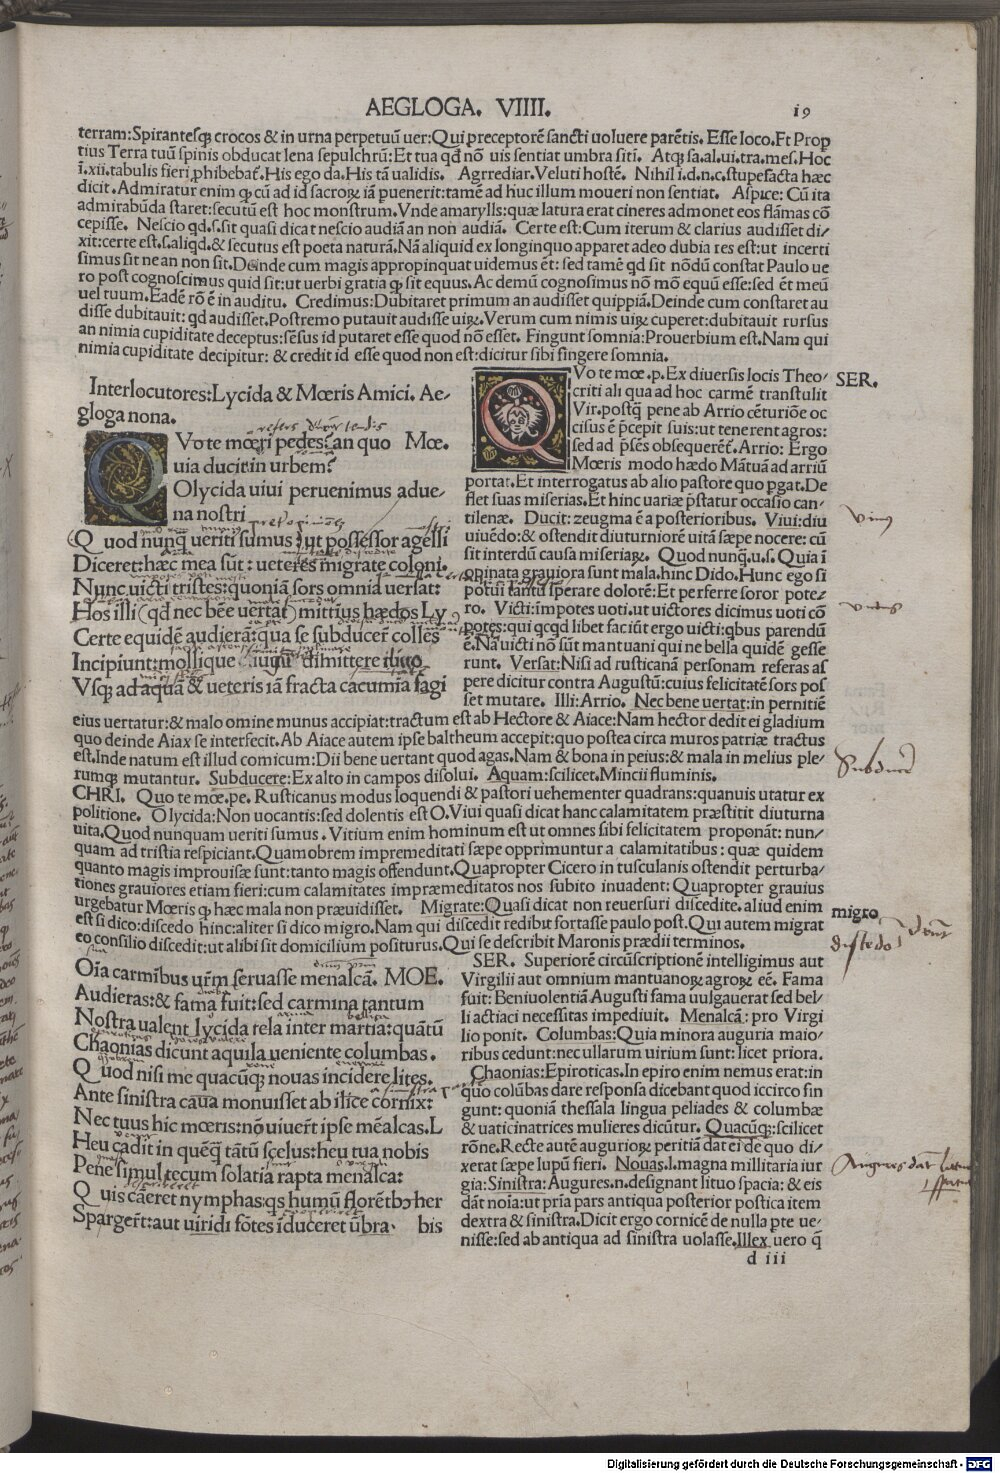 AEGLOGA. VIIII. 19
terram:Spirantesq; crocos & in urna perpetuū uer:Qui preceptorē sancti uoluere parētis. Esse loco.Et Prop
tius Terra tuū spinis obducat lena sepulchrū:Et tua qđ nō uis sentiat umbra siti. Atq; sa.al.ui.tra.mes. Hoc
ī.xii.tabulis fieri ꝓhibebaṯ. His ego da. His tā ualidis. Agrrediar. Veluti hostē. Nihil ī.d.n.c.stupefacta hæc
dicit. Admiratur enim ꝙ cū ad id sacroꝝ iā ꝑuenerit:tamē ad huc illum moueri non sentiat. Aspice: Cū ita
admirabūda staret:secutū est hoc monstrum.Vnde amarylls:quæ latura erat cineres admonet eos flāmas cō
cepisse. Nescio qd.s.sit quasi dicat nescio audiā an non audiā. Certe est:Cum iterum & clarius audisset di/
xit:certe est.s.aliqd.& secutus est poeta naturā.Nā aliquid ex longinquo apparet adeo dubia res est:ut incerti
simus sit ne an non sit.Deinde cum magis appropinquat uidemus ēt: sed tamē qd sit nōdū constat Paulo ue
ro post cognoscimus quid sit:ut uerbi gratia ꝙ sit equus.Ac demū cognosimus nō mō equū esse:sed ēt meū
uel tuum.Eadē rō ē in auditu. Credimus:Dubitaret primum an audisset quippiā.Deinde cum constaret au
disse dubitauit: qd audisset.Postremo putauit audisse uiꝝ.Verum cum nimis uiꝝ cuperet:dubitauit rursus
an nimia cupiditate deceptus:sēsus id putaret esse quod nō esset. Fingunt somnia:Prouerbium est.Nam qui
nimia cupiditate decipitur: & credit id esse quod non est:dicitur sibi fingere somnia.
Interlocutores:Lycida & Mœris Amici. Ae-
gloga nona.
QVo te mœri pedes?an quo Mœ.
uia ducit:in urbem?
O lycida uiui peruenimus adue-
na nostri
Q uod nunq̄ ueriti sumus :ut possessor agelli
Diceret:hæc mea sūt : ueteres migrate coloni.
Nunc uicti tristes:quoniā sors omnia uersat:
Hos illi (qđ nec bēe uertat) mittius hædos Ly
Certe equidē audierā:qua se subducer̄ colles
Incipiunt:mollique iugū dimittere cliuo
Vsq; ad aquā & ueteris iā fracta cacumīa fagi
QVo te mœ.p.Ex diuersis locis Theo/ SER.
criti ali qua ad hoc carmē transtulit
Vir.postq̄ pene ab Arrio cēturiōe oc
cisus ē p̄cepit suis:ut tenerent agros:
sed ad p̄sēs obsequereṯ.Arrio: Ergo
Mœris modo hædo Mātuā ad arriū
portat.Et interrogatus ab alio pastore quo ꝑgat.De
flet suas miserias.Et hinc uariæ p̄statur occasio can-
tilenæ. Ducit: zeugma ē a posterioribus. Viui:diu
uiuēdo:& ostendit diuturniorē uitā sæpe nocere: cū
sit interdū causa miseriaꝝ. Quod nunq̄.u.s.Quia ī
opinata grauiora sunt mala.hinc Dido.Hunc ego si
potui tantū sperare dolorē:Et perferre soror pote-
ro. Victi:impotes uoti.ut uictores dicimus uoti cō
potes:qui qcqd libet faciūt ergo uicti:qbus parendū
ē.Nā uicti nō sūt mantuani qui ne bella quidē gesse
runt. Versat:Nisi ad rusticanā personam referas as
pere dicitur contra Augustū:cuius felicitatē sors pos
set mutare. Illi:Arrio. Nec bene uertat:in pernitiē
eius uertatur:& malo omine munus accipiat:tractum est ab Hectore & Aiace:Nam hector dedit ei gladium
quo deinde Aiax se interfecit.Ab Aiace autem ipse baltheum accepit:quo postea circa muros patriæ tractus
est.Inde natum est illud comicum:Dii bene uertant quod agas.Nam & bona in peius:& mala in melius ple-
rumq; mutantur. Subducere:Ex alto in campos disolui. Aquam:scilicet.Mincii fluminis.
CHRI. Quo te mœ.pe. Rusticanus modus loquendi & pastori uehementer quadrans:quanuis utatur ex
politione. O lycida:Non uocantis:sed dolentis est O.Viui quasi dicat hanc calamitatem præstitit diuturna
uita.Quod nunquam ueriti sumus. Vitium enim hominum est ut omnes sibi felicitatem proponāt: nun/
quam ad tristia respiciant.Quamobrem impremeditati sæpe opprimuntur a calamitatibus : quæ quidem
quanto magis improuisæ sunt:tanto magis offendunt.Quapropter Cicero in tusculanis ostendit perturba-
tiones grauiores etiam fieri:cum calamitates impræmeditatos nos subito inuadent: Quapropter grauius
urgebatur Mœris ꝙ hæc mala non præuidisset. Migrate:Quasi dicat non reuersuri discedite.aliud enim
est si dico:discedo hinc:aliter si dico migro.Nam qui discedit redibit fortasse paulo post.Qui autem migrat
eo consilio discedit:ut alibi sit domicilium positurus.Qui se describit Maronis prædii terminos.
Oīa carmībus ur̄m seruasse menalcā. MOE.
Audieras:& fama fuit:sed carmina tantum
Nostra ualent lycida tela inter martia:quātū
Chaonias dicunt aquila ueniente columbas.
Q uod nisi me quacūq; nouas incidere lites.
Ante sinistra caua monuisset ab ilice cornix:
Nec tuus hic mœris:nō uiuer̄t ipse mēalcas.L
Heu cadit in quēq̄ tātū scelus:heu tua nobis
Pene simul tecum solatia rapta menalca:
Q uis caneret nymphas:qs humū florētbɔ her
Sparger̄t:aut uiridi fōtes īduceret ūbra. bis
SER. Superiorē circūscriptionē intelligimus aut
Virgilii aut omnium mantuanoꝝ agroꝝ eē. Fama
fuit: Beniuolentiā Augusti fama uulgauerat sed bel-
li actiaci necessitas impediuit. Menalcā: pro Virgi
lio ponit. Columbas:Quia minora auguria maio/
ribus cedunt:nec ullarum uirium sunt: licet priora.
Chaonias:Epiroticas.In epiro enim nemus erat:in
quo colūbas dare responsa dicebant quod iccirco fin
gunt: quoniā thessala lingua peliades & columbæ
& uaticinatrices mulieres dicūtur. Quacūq;:scilicet
rōne.Recte autē auguriorꝝ peritiā dat ei de quo di/
xerat sæpe lupū fieri. Nouas.l.magna millitaria iur
gia:Sinistra:Augures.n.designant lituo spacia: & eis
dāt noīa:ut pria pars antiqua posterior postica item
dextra & sinistra.Dicit ergo cornicē de nulla pte ue-
nisse:sed ab antiqua ad sinistra uolasse.Illex uero q̄
d iii
migro
discedo
Subducere
Digitalisierung gefördert durch die Deutsche Forschungsgemeinschaft - DFG